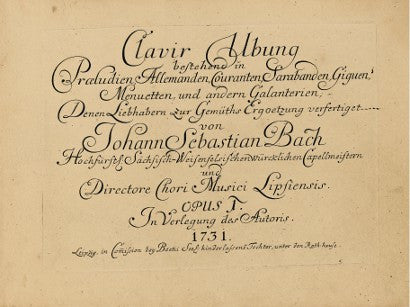 Clavir Ubung
bestehend in
Præludien, Allemanden, Couranten, Sarabanden, Giguen,
Menuetten, und andern Galanterien;
Denen Liebhabern zur Gemüths Ergoetzung verfertiget
von
Johann Sebastian Bach
Hochfürstl. Sächsisch-Weisenfelsischen würcklichen Capellmeistern
und
Directore Chori Musici Lipsiensis.
OPUS I.
In Verlegung des Autoris.
1731.
Leipzig, in Comission bey Boetii Seel. hinderlassenen Tochter, unter den Rath-hause.